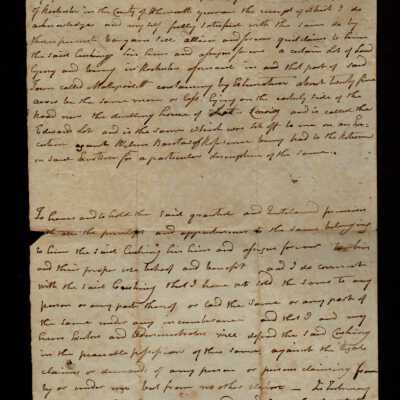 of Rochester in the County of Plymouth yeoman the receipt of which I do
acknowledge and myself fully satisfied with the same do by
these presents bargain sell alien and forever quitclaim to him
the said Cushing his heirs and assigns forever a certain lot of Land
lying and being in Rochester aforesaid in and that part of said
Town called Mattapoisett containing by Estimation about twenty five
acres be the same more or less lying on the easterly side of the
Road near the dwelling house of and is called the
Edward Lot and is the same which was set off to me on an Ex-
ecution against Wilson Barstow of Reference being had to the Return
on said Execution for a particular description of the same.
To have and to hold the said granted and Quitclaimed premises
with all the privileges and appurtenances to the same belonging
to him the said Cushing his heirs and assigns forever to his
and their proper use behoof and benefit and I do covenant
with the said Cushing that I have not sold the same to any
person or any part thereof or laid the same or any part of
the same under any incumbrance and that I and my
heirs Exetors and Administrators will defend the said Cushing
in the peaceable possession of the same against the legal
claims or demands of any person or persons claiming from
by or under me but from no other - In Testimony